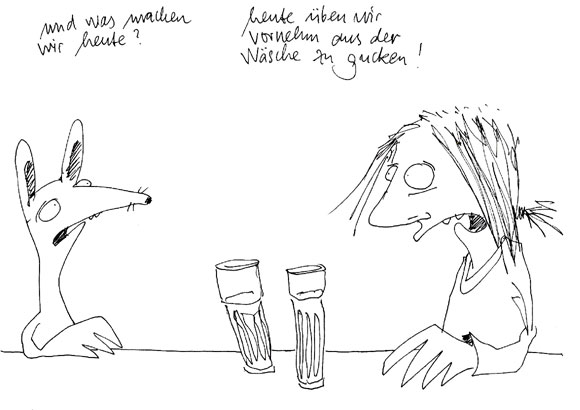 und was machen
wir heute?
heute üben wir
vornehm aus der
Wäsche zu gucken!